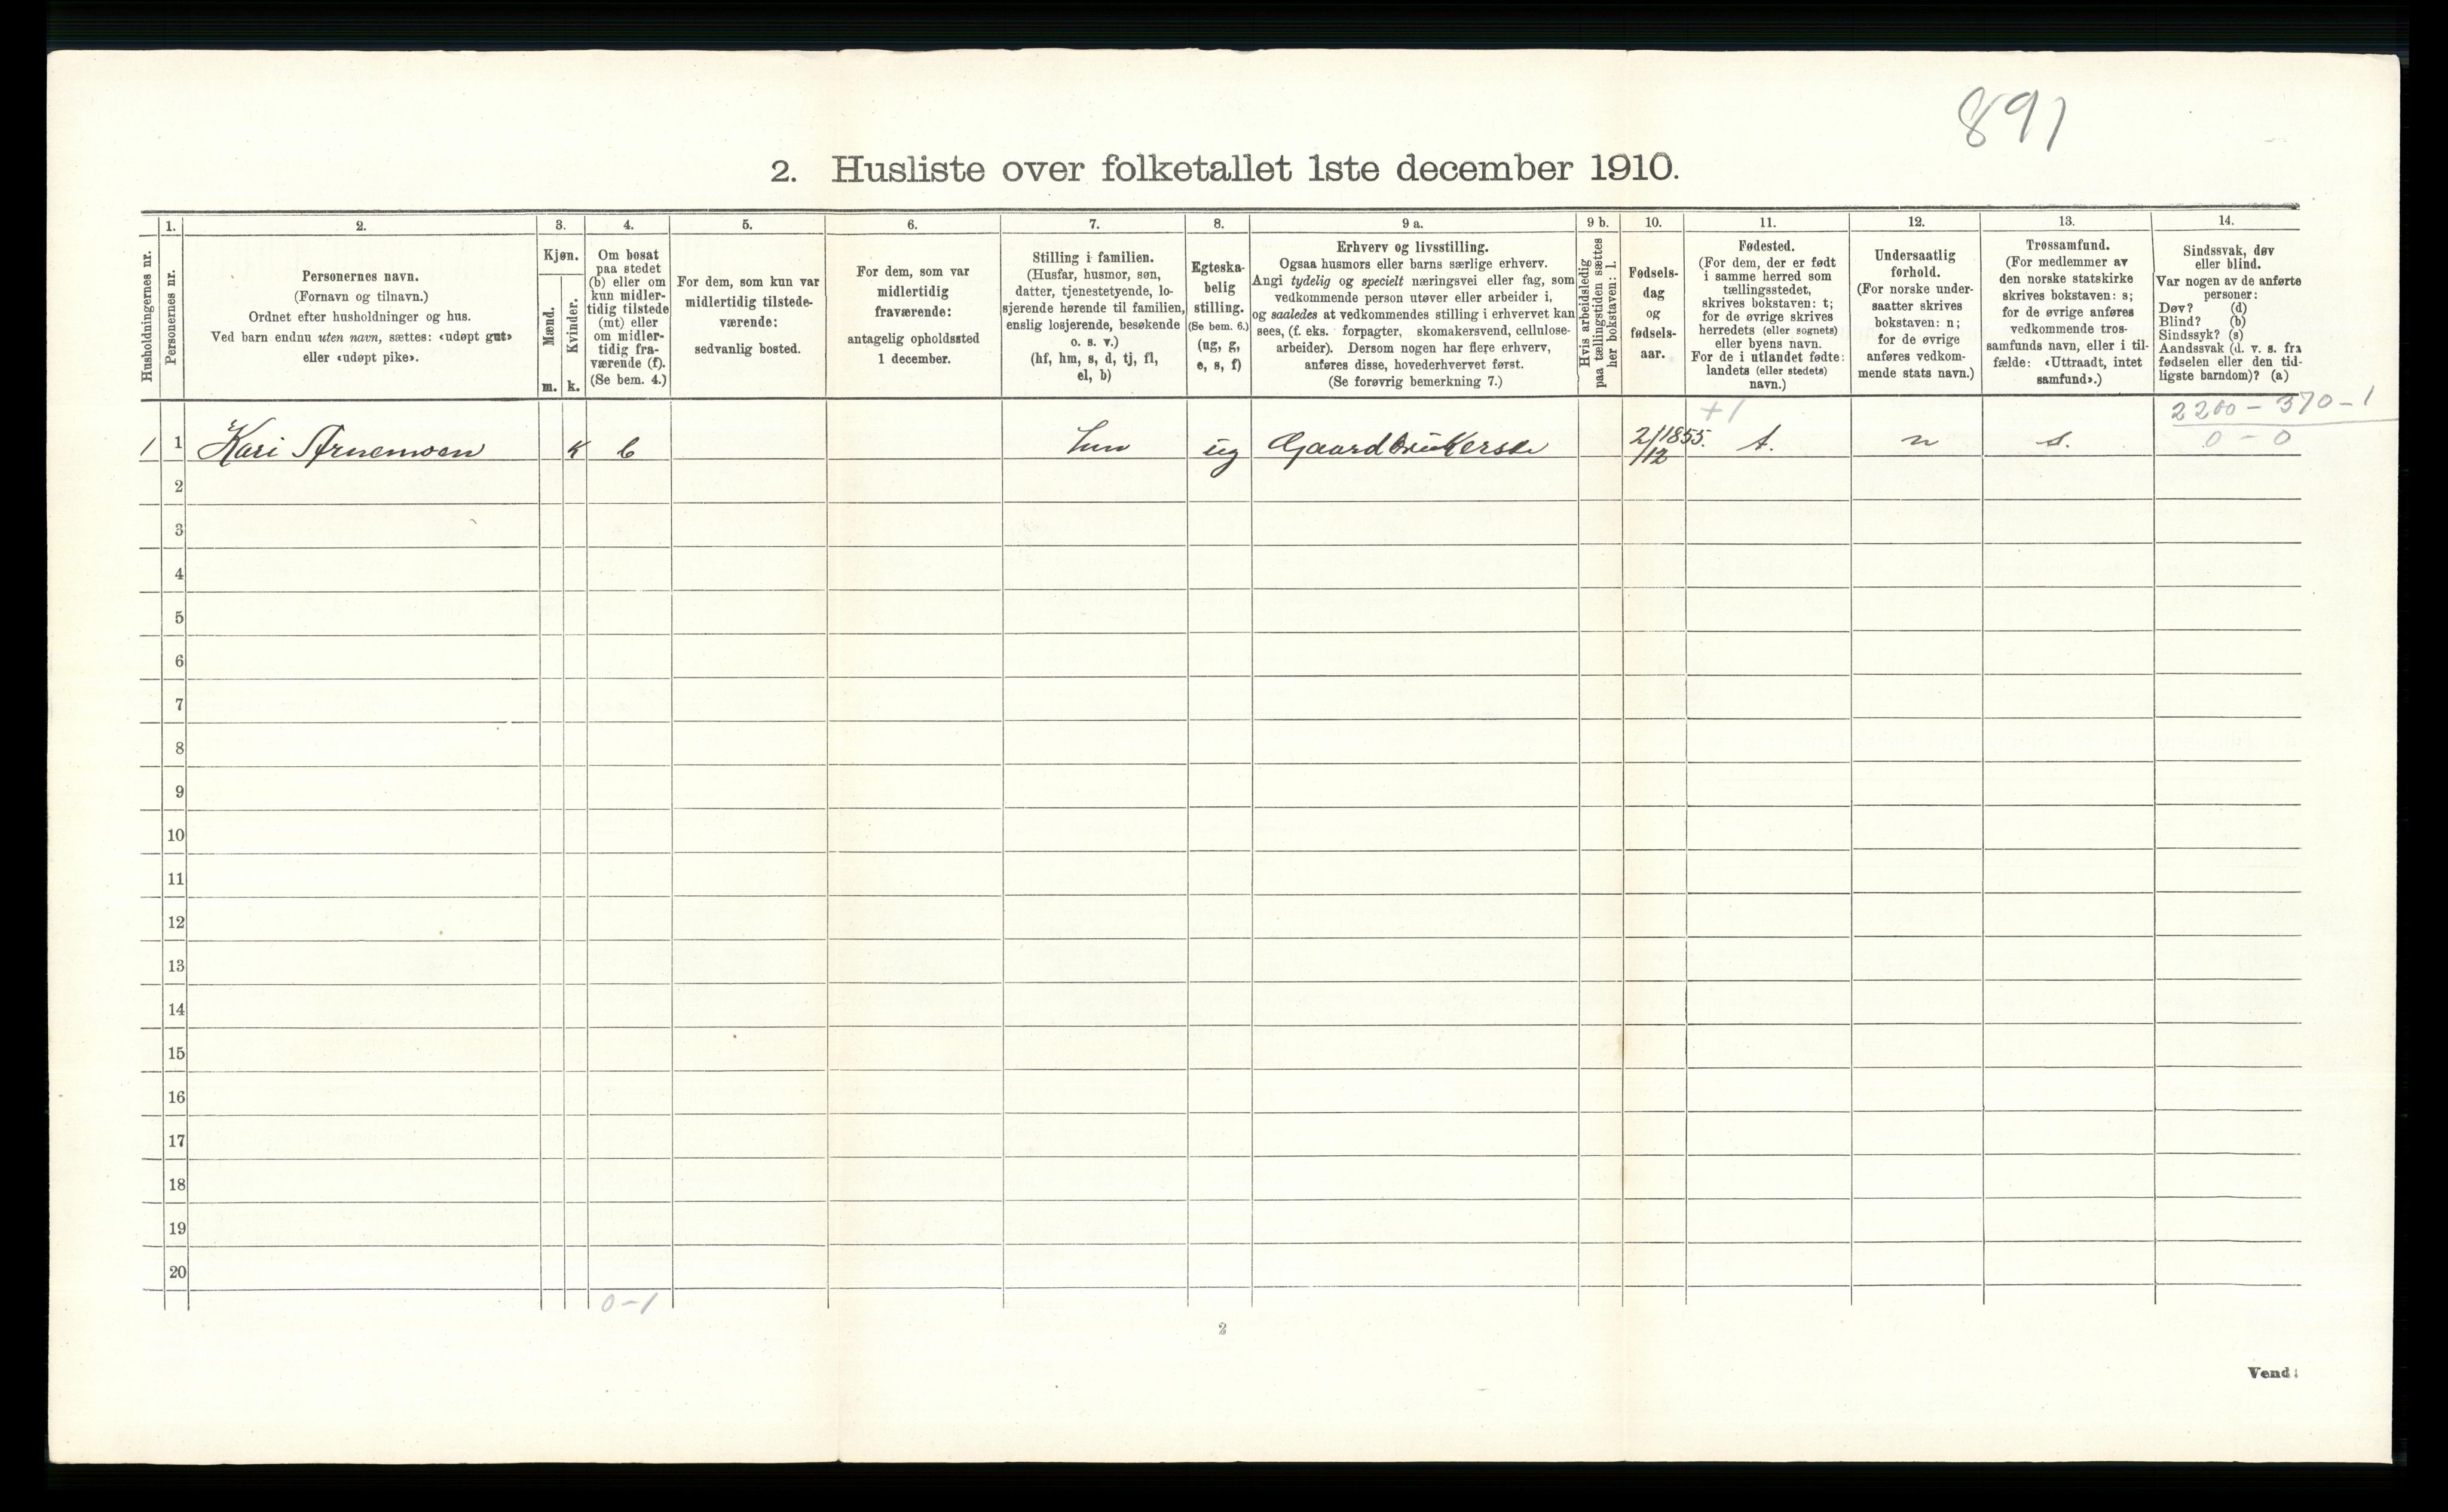 891
2. Husliste over folketallet 1ste december 1910.
Husholdningernes nr.
1.
Personernes nr.
2.
Personernes navn.
(Fornavn og tilnavn.)
Ordnet efter husholdninger og hus.
Ved barn endnu uten navn, sættes: «udøpt gut»
eller «udøpt pike».
3.
Kjøn.
Mænd.
m.
Kvinder.
k.
4.
Om bosat
paa stedet
(b) eller om
kun midler-
tidig tilstede
(mt) eller
om midler-
tidig fra-
værende (f).
(Se bem. 4.)
5.
For dem, som kun var
midlertidig tilstede-
værende:
sedvanlig bosted.
6.
For dem, som var
midlertidig
fraværende:
antagelig opholdssted
1 december.
7.
Stilling i familien.
(Husfar, husmor, søn,
datter, tjenestetyende, lo-
sjerende hørende til familien,
enslig losjerende, besøkende
o. s. v.)
(hf, hm, s, d, tj, fl,
el, b)
8.
Egteska-
belig
stilling.
(Se bem. 6.)
(ug, g,
e, s, f)
9 a.
Erhverv og livsstilling.
Ogsaa husmors eller barns særlige erhverv.
Angi tydelig og specielt næringsvei eller fag, som
vedkommende person utøver eller arbeider i,
og saaledes at vedkommendes stilling i erhvervet kan
sees, (f. eks. forpagter, skomakersvend, cellulose-
arbeider). Dersom nogen har flere erhverv,
anføres disse, hovederhvervet først.
(Se forøvrig bemerkning 7.)
9 b.
Hvis arbeidsledig
paa tællingstiden sættes
her bokstaven: l.
10.
Fødsels-
dag
og
fødsels-
aar.
11.
Fødested.
(For dem, der er født
i samme herred som
tællingsstedet,
skrives bokstaven: t;
for de øvrige skrives
herredets (eller sognets)
eller byens navn.
For de i utlandet fødte:
landets (eller stedets)
navn.)
12.
Undersaatlig
forhold.
(For norske under-
saatter skrives
bokstaven: n;
for de øvrige
anføres vedkom-
mende stats navn.)
13.
Trossamfund.
(For medlemmer av
den norske statskirke
skrives bokstaven: s;
for de øvrige anføres
vedkommende tros-
samfunds navn, eller i til-
fælde: «Uttraadt, intet
samfund».)
14.
Sindssvak, døv
eller blind.
Var nogen av de anførte
personer:
Døv? (d)
Blind? (b)
Sindssyk? (s)
Aandssvak (d. v. s. fra
fødselen eller den tid-
ligste barndom)? (a)
+1
2200 - 370 - 1
0 - 0
1 1 Kari Arnemoen k b hm ug Gaardbrukerske 2/12 1855. t. n s.
2
3
4
5
6
7
8
9
10
11
12
13
14
15
16
17
18
19
20
0-1
2
Vend!